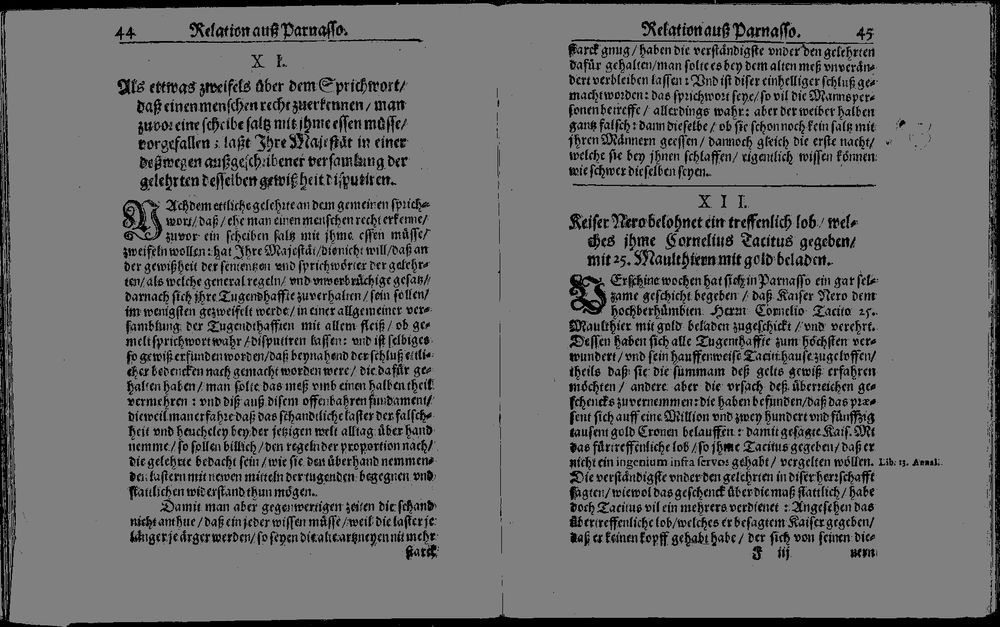 44 Relation auß Parnasso.
XI.
Als ettwas zweifels über dem Sprichwort/
daß einen menschen recht zuerkennen/ man
zuvor eine scheibe saltz mit jhme essen müsse/
vorgefallen: laßt Ihre Majestät in einer
deßwegen außgeschribener versamlung der
gelehrten desselben gewißheit disputiren.
NAchdem etliche gelehrte an dem gemeinen sprich-
wort/ daß/ ehe man einen menschen recht erkenne/
zuvor ein scheiben saltz mit jhme essen müsse/
zweifeln wollen: hat Ihre Majestät/ die nicht will/ daß an
der gewißheit der sententzen und sprichwörter der gelehr-
ten/ als welche general regeln/ und vnverbrüchige gesatz/
darnach sich jhre Tugendhaffte zuverhalten/ sein sollen/
im wenigsten gezweifelt werde/ in einer allgemeiner ver-
samblung der Tugendthafften mit allem fleiß/ ob ge-
melt sprichwort wahr/ disputiren lassen: und ist selbiges
so gewiß erfunden worden/ daß beynahend der schluß etli-
cher bedencken nach gemacht worden were/ die dafür ge-
halten haben/ man solte das meß vmb einen halben theil
vermehren: vnd diß auß disem offenbahren fundament/
dieweil man erfahre daß das schandtliche laster der falsch-
heit vnd heucheley bey der jetzigen welt alltag überhand
nemme/ so sollen billich/ den regeln der proportion nach/
die gelehrte bedacht sein/ wie sie den überhand nemmen-
den lastern mit newen mitteln der tugenden begegnen vnd
stattlichen widerstand thun mögen.
Damit man aber gegenwertigen zeiten die schand
nicht anthue/ daß ein jeder wissen müsse/ weil die laster je
länger je ärger werden/ so seyen die alte artzneyen nit mehr
starck
Relation auß Parnasso. 45
starck gnug/ haben die verständigste vnder den gelehrten
dafür gehalten/ man solte es bey dem alten meß vnverän-
dert verbleiben lassen: Vnd ist diser einhelliger schluß ge-
macht worden: das sprichwort seye/ so vil die Mannsper-
sonen betreffe/ allerdings wahr: aber der weiber halben
gantz falsch: dann dieselbe/ ob sie schon noch kein saltz mit
jhren Männern geessen/ dannoch gleich die erste nacht/
welche sie bey jhnen schlaffen/ eigentlich wissen können
wie schwer dieselben seyen.
XII.
Keiser Nero belohnet ein treffenlich lob/ wel-
ches jhme Cornelius Tacitus gegeben/
mit 25. Maulthiern mit gold beladen.
VErschine wochen hat sich in Parnasso ein gar sel-
zame geschicht begeben/ daß Kaiser Nero dem
hochberhümbten Herrn Cornelio Tacito 25.
Maulthier mit gold beladen zugeschickt/ vnd verehrt.
Dessen haben sich alle Tugenthaffte zum höchsten ver-
wundert/ vnd sein hauffenweise Taciti hause zugeloffen/
theils daß sie die summam deß gelts gewiß erfahren
möchten/ andere aber die vrsach deß überreichen ge-
schencks zuvernemmen: die haben befunden/ daß das præ-
sent sich auff eine Million vnd zwey hundert vnd fünffzig
tausent gold Cronen belauffen: damit gesagte Kais. Mt
das fürtreffenliche lob/ so jhme Tacitus gegeben/ daß er
nicht ein ingenium infra servos gehabt/ vergelten wöllen. Lib. 13. Annal.
Die verständigste vnder den gelehrten in diser herrschafft
sagten/ wiewol das geschenck über die maß stattlich/ habe
doch Tacitus vil ein mehrers verdienet: Angesehen das
übertreffenliche lob/ welches er besagtem Kaiser gegeben/
daß er keinen kopff gehabt habe/ der sich von seinen die-
F iij nern